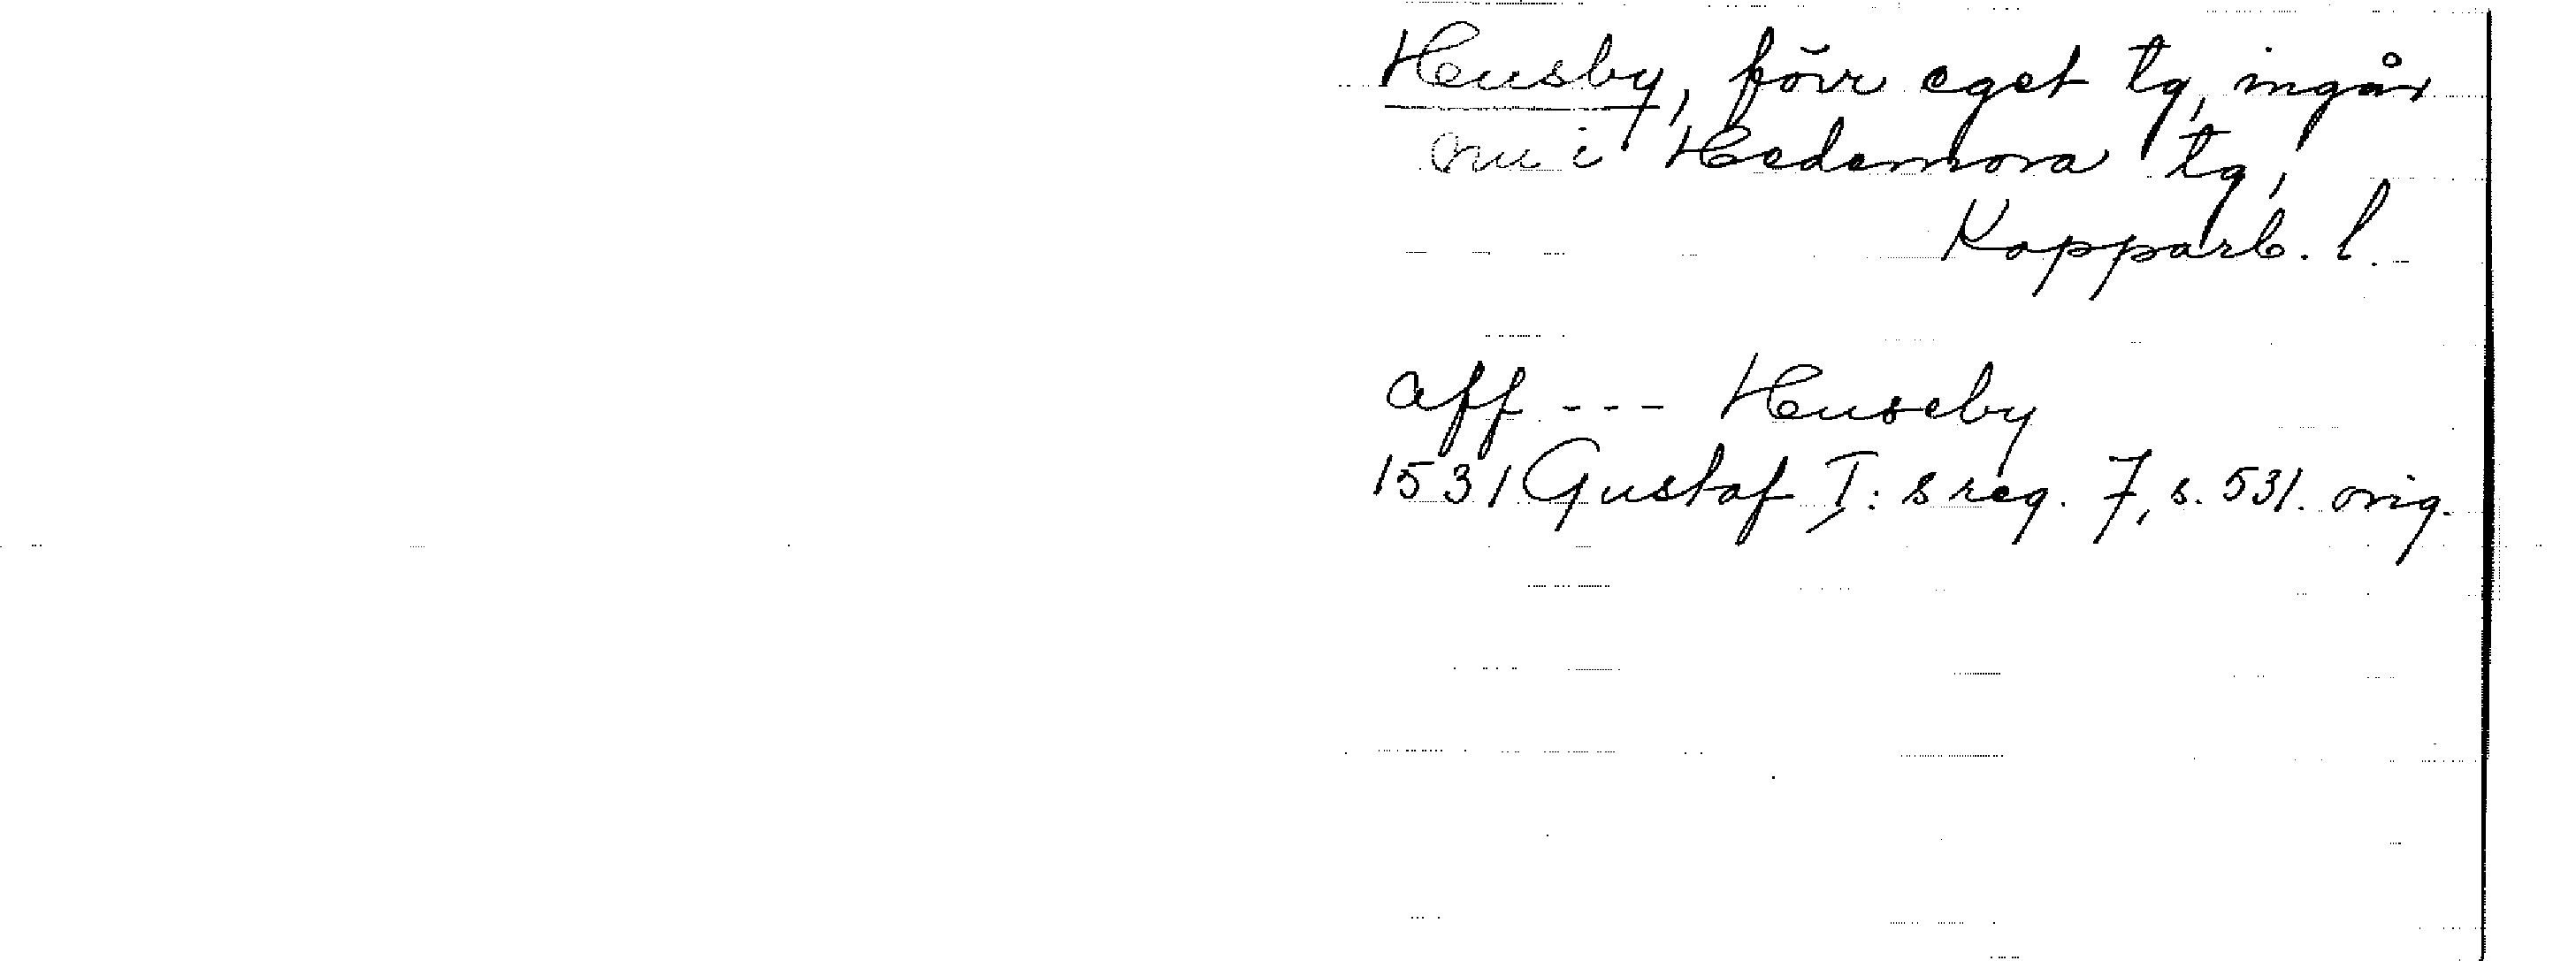 Husby, förr eget tg, ingår
nu i Hedemora tg,
Kopparb. l.
aff --- Huseby
1531 Gustaf I: s reg. 7, s. 531. orig.